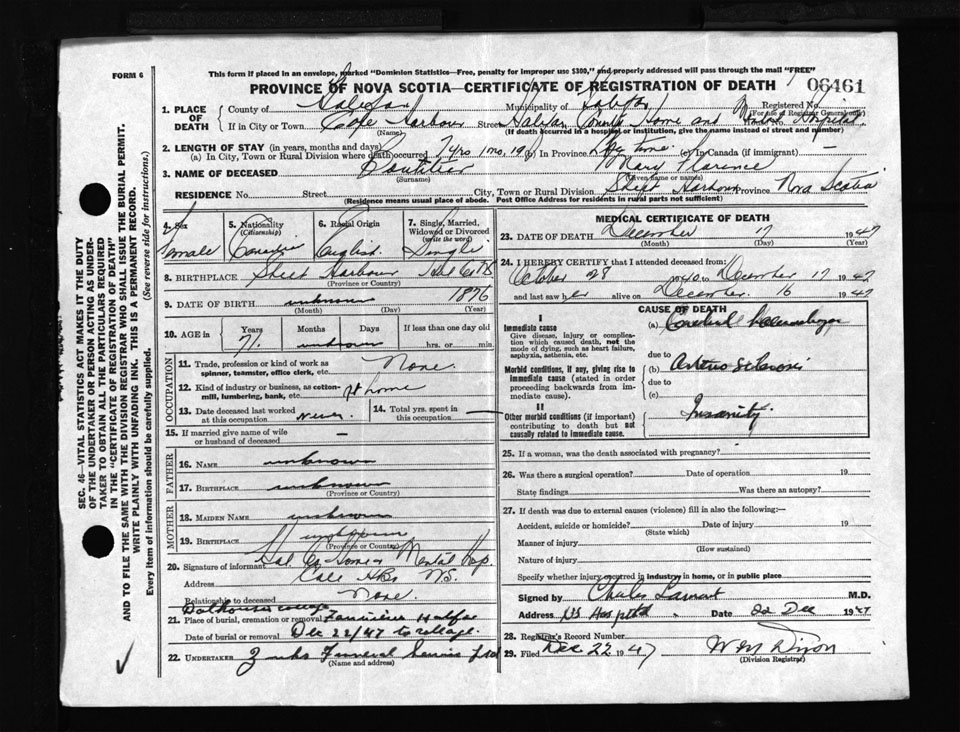 FORM 6
This form if placed in an envelope, marked "Dominion Statistics—Free, penalty for improper use $300," and properly addressed will pass through the mail "FREE"
PROVINCE OF NOVA SCOTIA—CERTIFICATE OF REGISTRATION OF DEATH
06461
1. PLACE OF DEATH
County of Halifax Municipality of Halifax Registered No.
(For use of Registrar General only)
If in City or Town Cole Harbour Street Halifax County Home and Mental Hospital
(Name) (If death occurred in a hospital or institution, give the name instead of street and number)
2. LENGTH OF STAY (in years, months and days)
(a) In City, Town or Rural Division where death occurred 7 yrs 1 mo. 19 d (b) In Province Life time (c) In Canada (if immigrant) —
3. NAME OF DECEASED Boutilier Mary Florence
(Surname) (Given name or names)
RESIDENCE No. Street City, Town or Rural Division Sheet Harbour Province Nova Scotia
(Residence means usual place of abode. Post Office Address for residents in rural parts not sufficient)
4. Sex Female
5. Nationality (Citizenship)
6. Racial Origin English
7. Single, Married, Widowed or Divorced (write the word) Single
8. BIRTHPLACE Sheet Harbour Hal Co NS
(Province or Country)
9. DATE OF BIRTH unknown 1876
(Month) (Day) (Year)
10. AGE in Years Months Days If less than one day old
71 unknown hrs. or min.
OCCUPATION
11. Trade, profession or kind of work as spinner, teamster, office clerk, etc. None
12. Kind of industry or business, as cotton-mill, lumbering, bank, etc. At home
13. Date deceased last worked at this occupation Never
14. Total yrs. spent in this occupation —
15. If married give name of wife or husband of deceased —
FATHER
16. NAME unknown
17. BIRTHPLACE unknown
(Province or Country)
MOTHER
18. MAIDEN NAME unknown
19. BIRTHPLACE unknown
(Province or Country)
20. Signature of informant Hal Co Home & Mental Hosp.
Address Cole Hbr NS.
Relationship to deceased None
Dalhousie College
21. Place of burial, cremation or removal Halifax
Date of burial or removal Dec 22/47 to college.
22. UNDERTAKER Funeral Service Ltd
(Name and address)
MEDICAL CERTIFICATE OF DEATH
23. DATE OF DEATH December 17 1947
(Month) (Day) (Year)
24. I HEREBY CERTIFY that I attended deceased from:
October 28 1940 to December 17 1947
and last saw her alive on December 16 1947
CAUSE OF DEATH
I
Immediate cause
Give disease, injury or complication which caused death, not the mode of dying, such as heart failure, asphyxia, asthenia, etc.
(a) Cerebral haemorrhage
due to
Morbid conditions, if any, giving rise to immediate cause (stated in order proceeding backwards from immediate cause).
Arterio Sclerosis
due to
(c)
II
Other morbid conditions (if important) contributing to death but not causally related to immediate cause.
Insanity
25. If a woman, was the death associated with pregnancy?
26. Was there a surgical operation? Date of operation 19
State findings Was there an autopsy?
27. If death was due to external causes (violence) fill in also the following:—
Accident, suicide or homicide? Date of injury 19
(State which)
Manner of injury
(How sustained)
Nature of injury
Specify whether injury occurred in industry, in home, or in public place
Signed by Charles M.D.
Address NS Hospital Date 22 Dec 1947
28. Registrar's Record Number
29. Filed Dec 22 1947 W M Dixon
(Division Registrar)
SEC. 46—VITAL STATISTICS ACT MAKES IT THE DUTY OF THE UNDERTAKER OR PERSON ACTING AS UNDERTAKER TO OBTAIN ALL THE PARTICULARS REQUIRED IN THE "CERTIFICATE OF REGISTRATION OF DEATH" AND TO FILE THE SAME WITH THE DIVISION REGISTRAR WHO SHALL ISSUE THE BURIAL PERMIT.
WRITE PLAINLY WITH UNFADING INK. THIS IS A PERMANENT RECORD.
Every item of information should be carefully supplied. (See reverse side for instructions.)